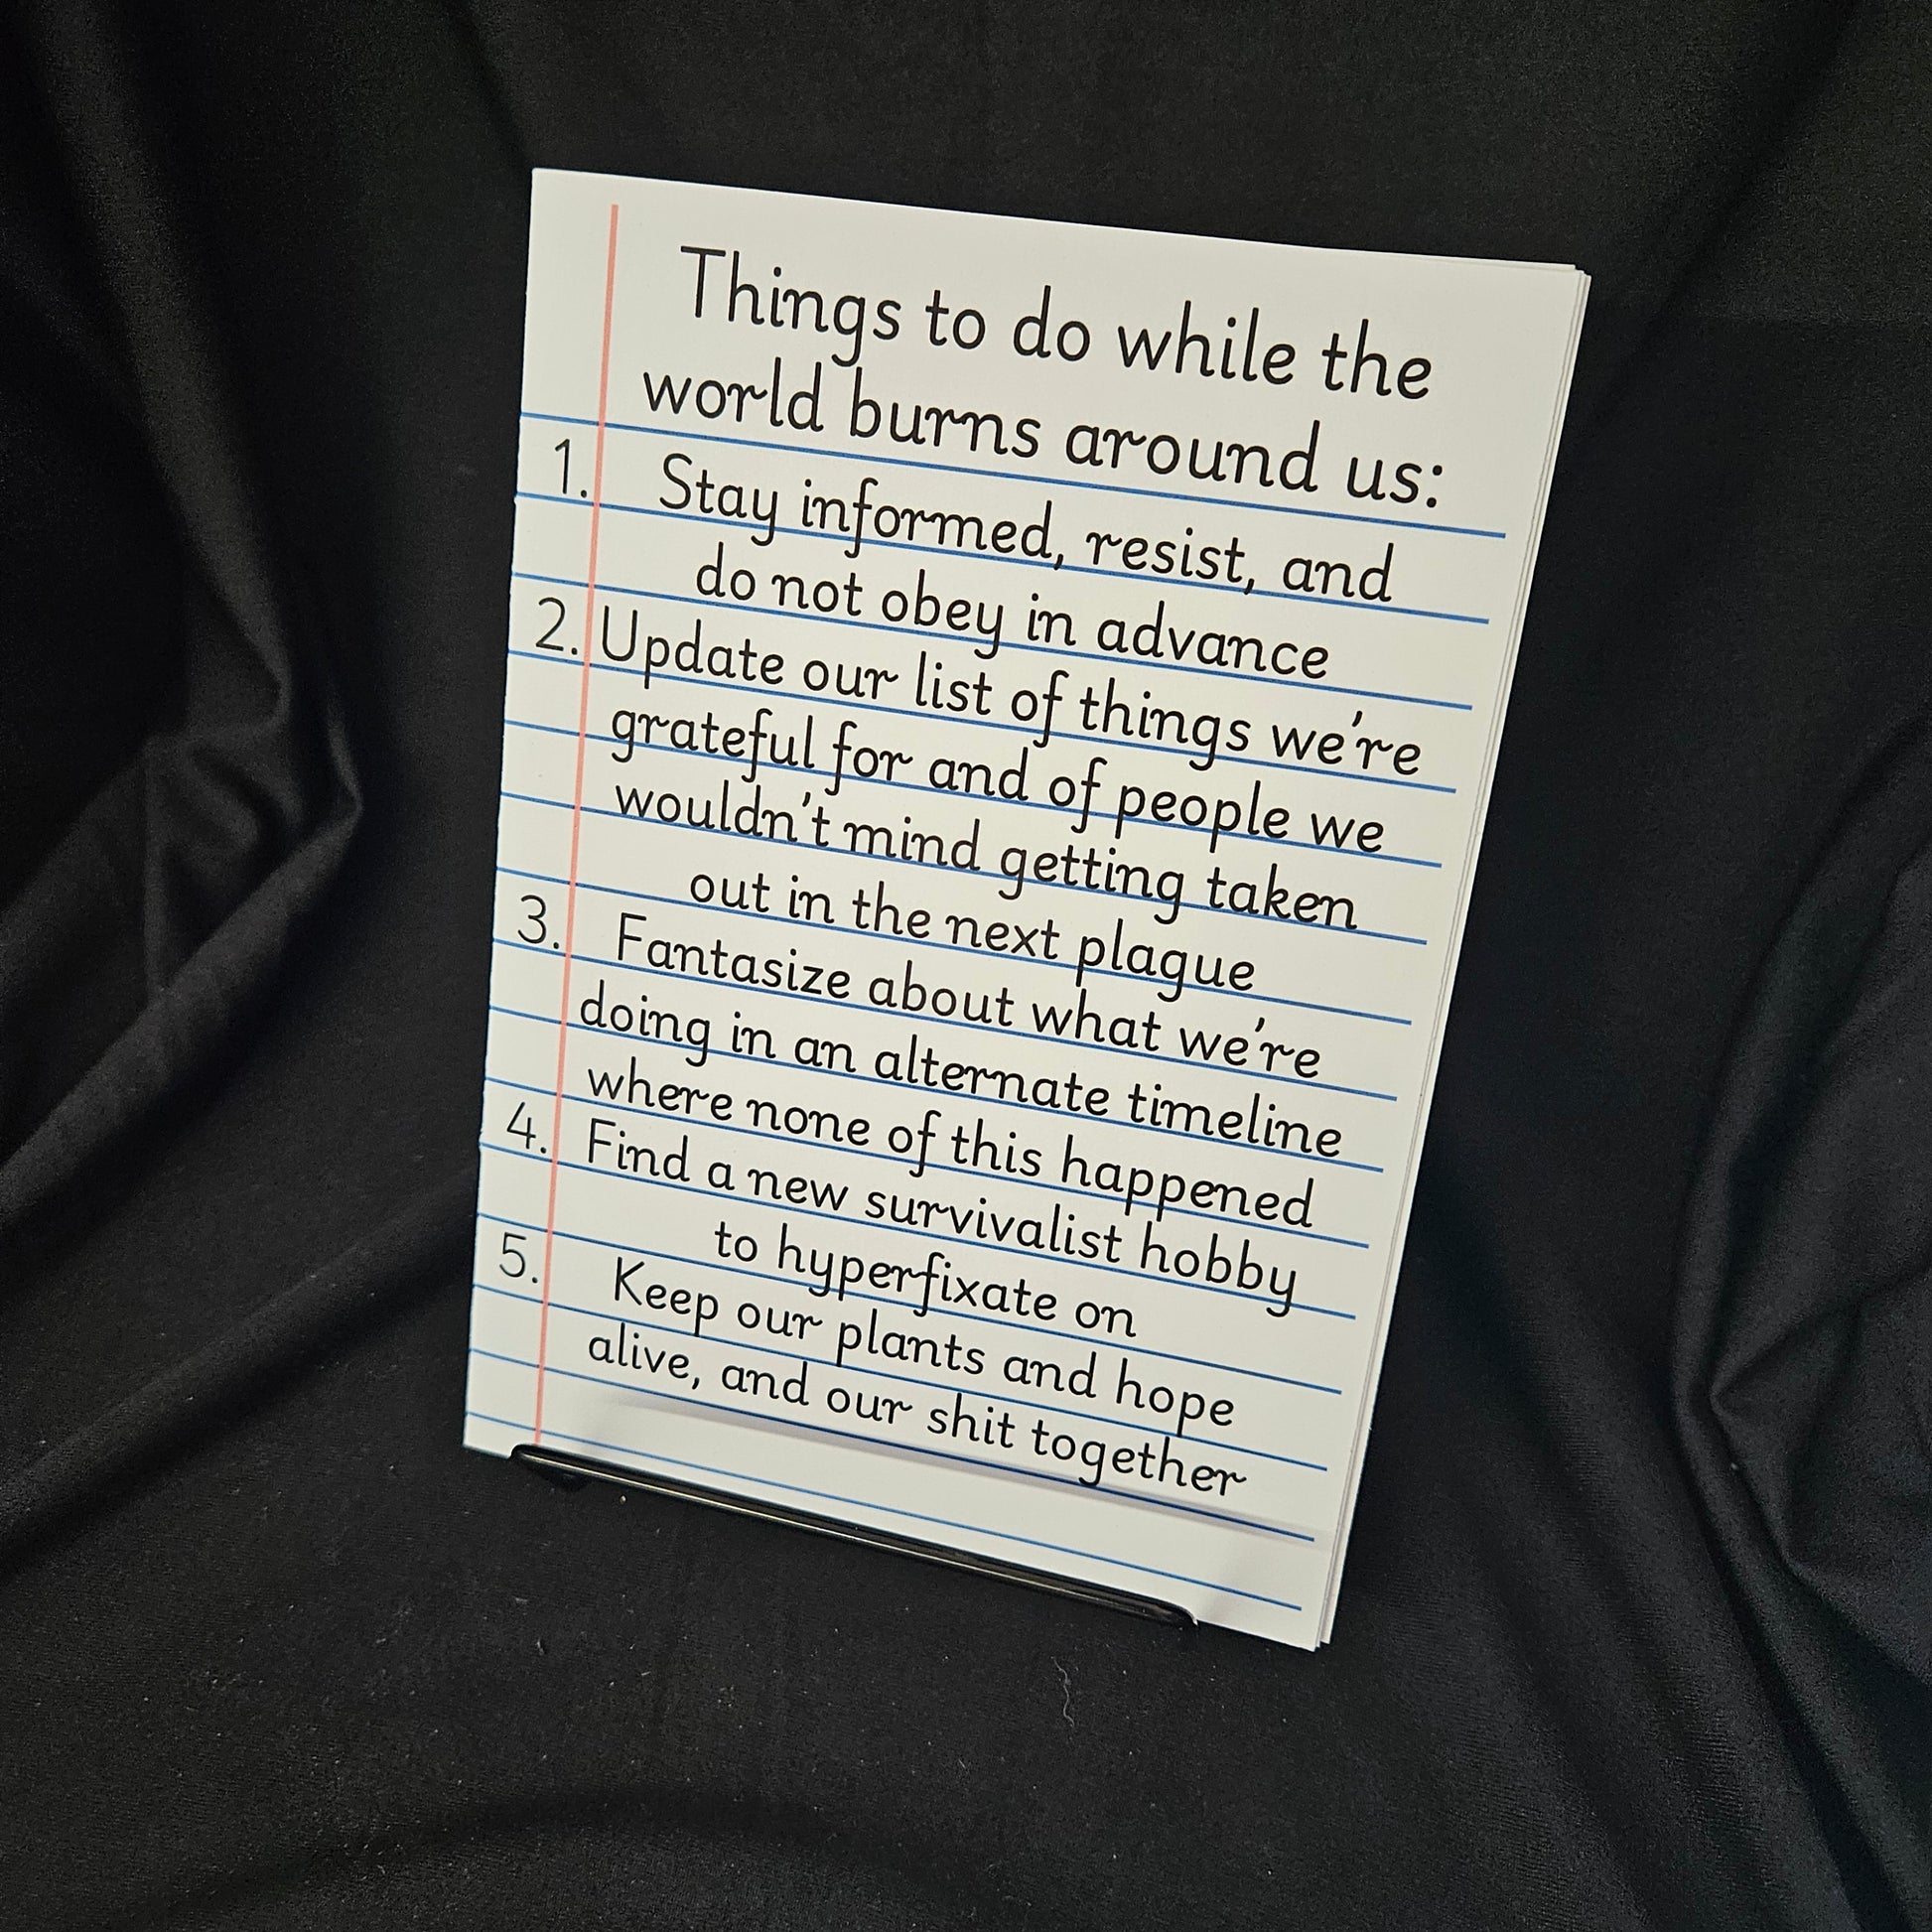 Things to do while the
world burns around us:
1. Stay informed, resist, and
do not obey in advance
2. Update our list of things we're
grateful for and of people we
wouldn't mind getting taken
out in the next plague
3. Fantasize about what we're
doing in an alternate timeline
where none of this happened
4. Find a new survivalist hobby
to hyperfixate on
5. Keep our plants and hope
alive, and our shit together